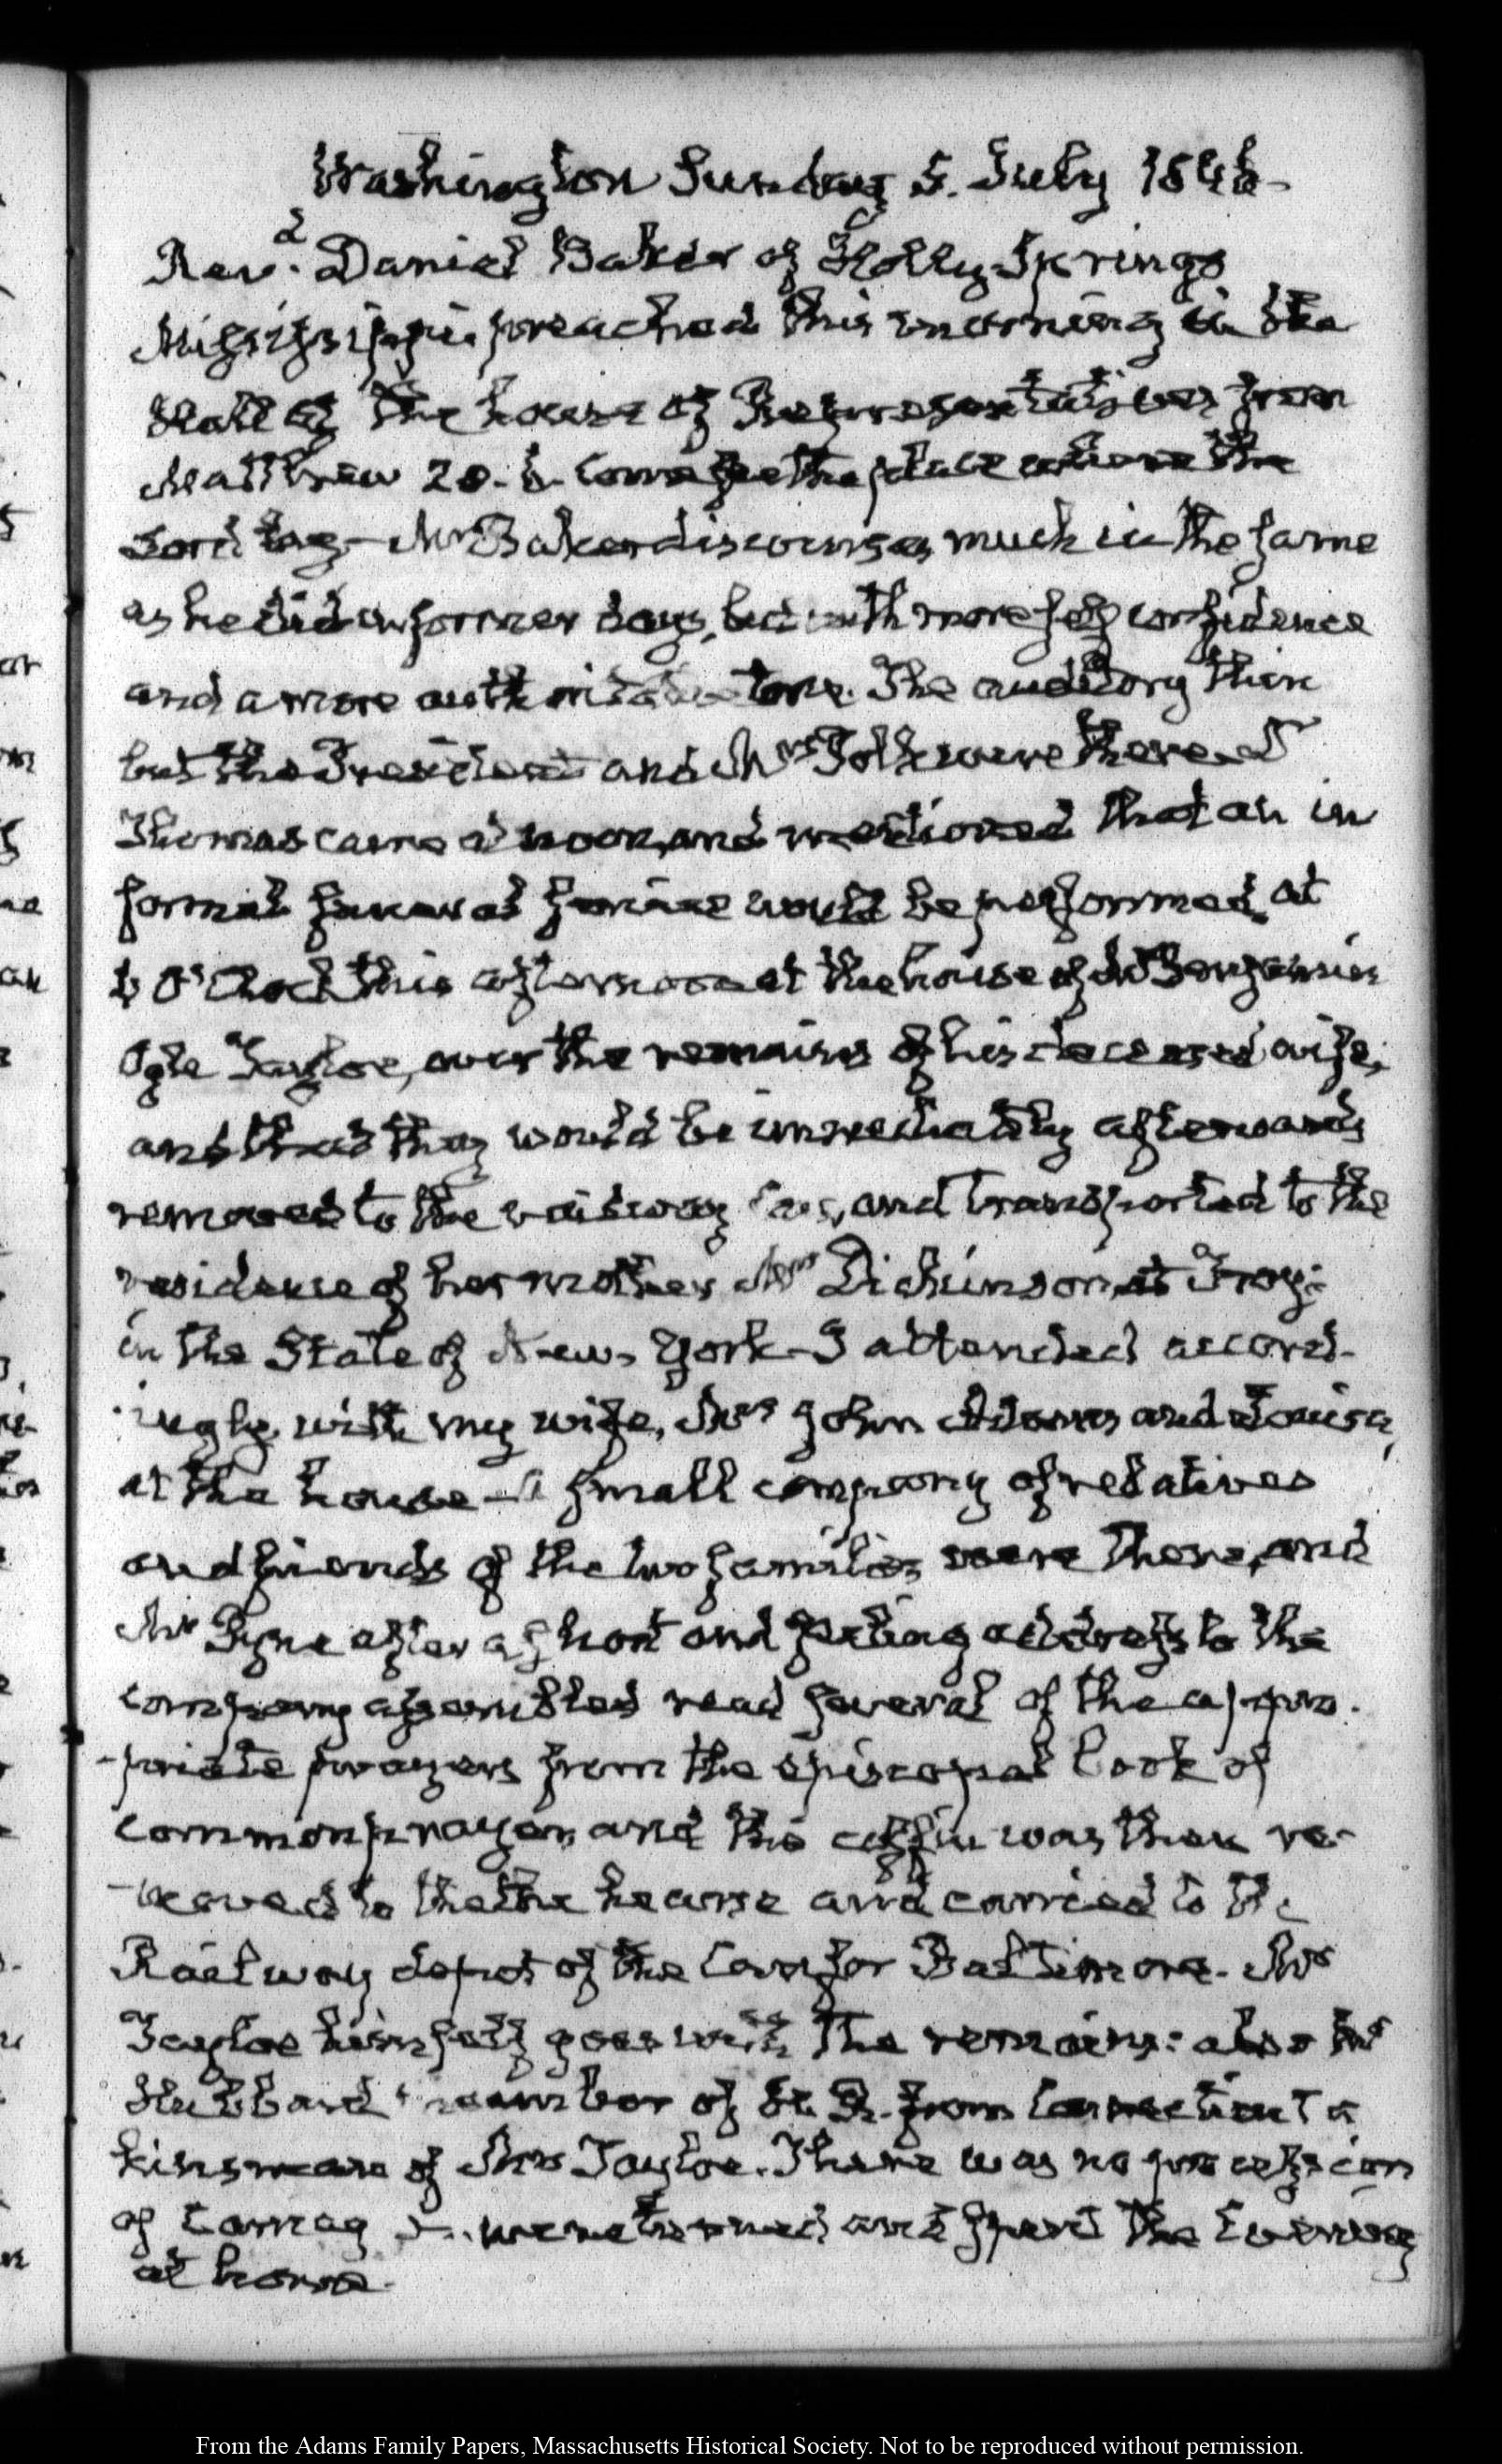 Washington Sunday 5. July 1846-
Revd. Daniel Baker of Holly Springs
Mississippi. preached this morning in the
Hall of the house of Representatives from
Matthew 28. 6. Come see the place where the
Lord lay— Mr Baker discourses much in the same
as he did in former days, but with more self confidence
and a more authoritative tone. The auditory thin
but the President and Mrs Polk were there. Dr
Thomas came at noon, and mentioned that an in
formal funeral service would be performed, at
6 O'Clock this afternoon at the house of Mr Benjamin
Ogle Tayloe, over the remains of his deceased wife,
and that they would be immediately afterwards
removed to the railway Cars, and transported to the
residence of her mother Mrs Dickinson, at Troy:
in the State of New-York—I attended accord-
ingly, with my wife, Mrs John Adams and Louisa,
at the house—A small company of relatives
and friends of the two families were there, and
Mr Pyne after a short and feeling address to the
company assembled read several of the appro-
-priate prayers from the episcopal book of
common prayer, and the coffin was then re-
-moved to the the hearse and carried to the
Railway depot of the Cars for Baltimore. Mr
Tayloe himself goes with the remains: also Mr
Hubbard member of H. R. from Connecticut a
kinsman of Mrs Tayloe. There was no procession
of Carriages we returned and spent the Evening
at home.
From the Adams Family Papers, Massachusetts Historical Society. Not to be reproduced without permission.